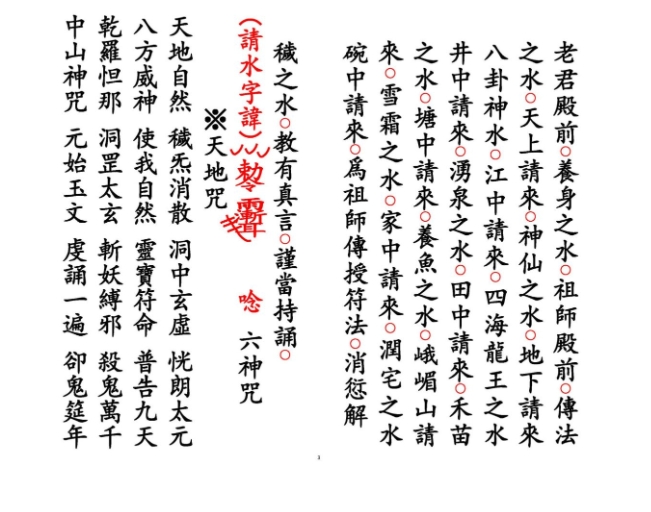 老君殿前○養身之水○祖師殿前○傳法
之水○天上請來○神仙之水○地下請來
八卦神水○江中請來○四海龍王之水
井中請來○湧泉之水○田中請來○禾苗
之水○塘中請來○養魚之水○峨嵋山請
來○雪霜之水○家中請來○潤宅之水
碗中請來○爲祖師傳授符法○消愆解
穢之水○教有真言○謹當持誦○
(請水字諱) 唸 六神咒
※天地咒
天地自然 穢炁消散 洞中玄虛 恍朗太元
八方威神 使我自然 靈寶符命 普告九天
乾羅怛那 洞罡太玄 斬妖縛邪 殺鬼萬千
中山神咒 元始玉文 虔誦一遍 卻鬼筵年